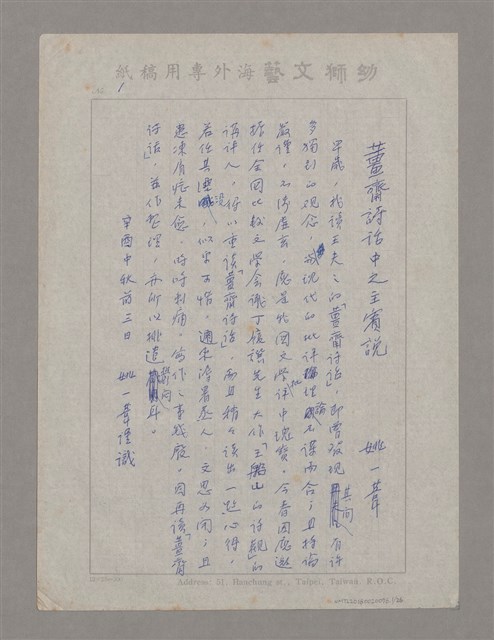 幼獅文藝海外專用稿紙
1
薑齋詩話中之主賓說
姚一葦
早歲,我讀王夫之的「薑齋詩話」,即曾發現其間有許
多獨到的觀念,與現代的批評理論不謀而合;且持論
嚴謹,不涉虛玄,應是我國文學批評中瑰寶。今春因應邀
擔任全國比較文學會議丁履譔先生大作「王船山的詩觀」的
講評人,得以重讀「薑齋詩話」,而且稍稍讀出一點心得,
若任其湮沒,似不可惜,邇來溽暑蒸人,文思不開;且
患凍肩症未愈,時時刺痛,寫作之事幾廢,因再讀「薑齋
詩話」,並作整理,亦所以排遣時間耳。
辛酉中秋前三日 姚一葦謹識
Address: 51, Hanchung st., Taipei, Taiwan, R.O.C.